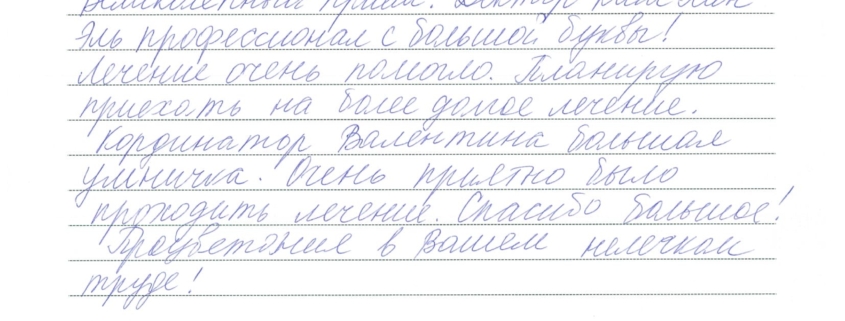 Великолепный приём. Доктор Ким Хан
Эль профессионал с большой буквы!
Лечение очень помогло. Планирую
приехать на более долгое лечение.
Кординатор Валентина большая
умничка. Очень приятно было
проходить лечение. Спасибо большое!
Процветания в Вашем нелёгком
труде!